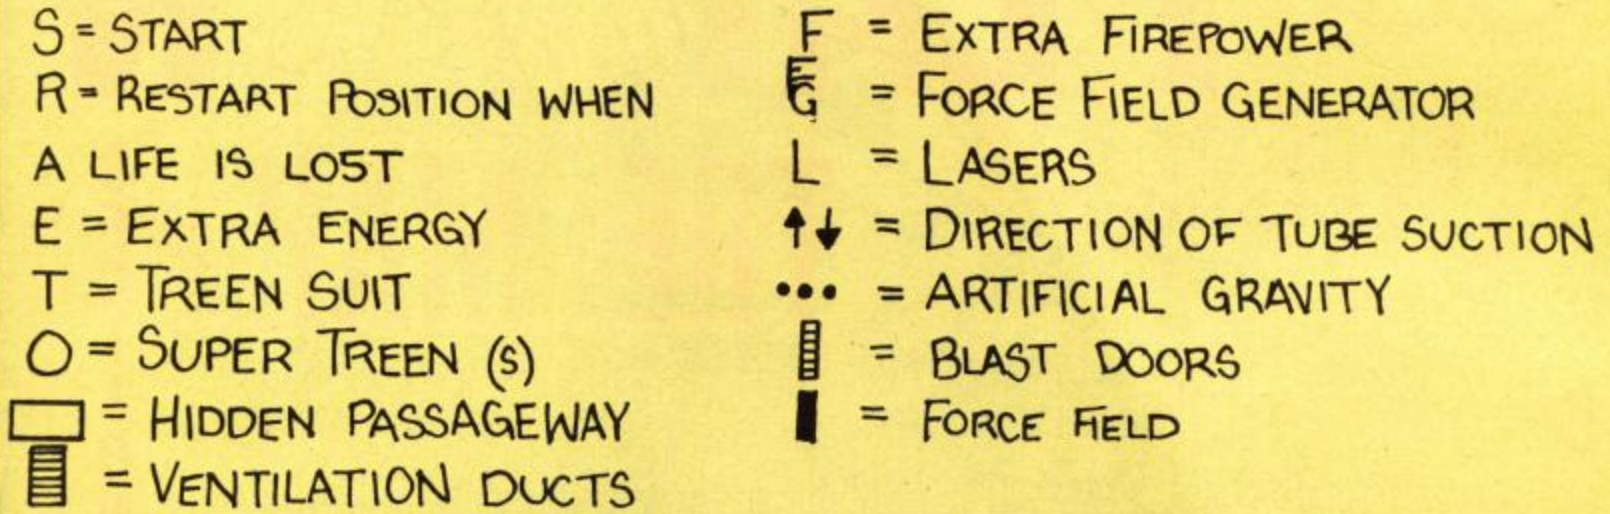 S = START
R = RESTART POSITION WHEN
A LIFE IS LOST
E = EXTRA ENERGY
T = TREEN SUIT
O = SUPER TREEN (S)
= HIDDEN PASSAGEWAY
= VENTILATION DUCTS
F = EXTRA FIREPOWER
FG = FORCE FIELD GENERATOR
L = LASERS
↑↓ = DIRECTION OF TUBE SUCTION
••• = ARTIFICIAL GRAVITY
= BLAST DOORS
= FORCE FIELD